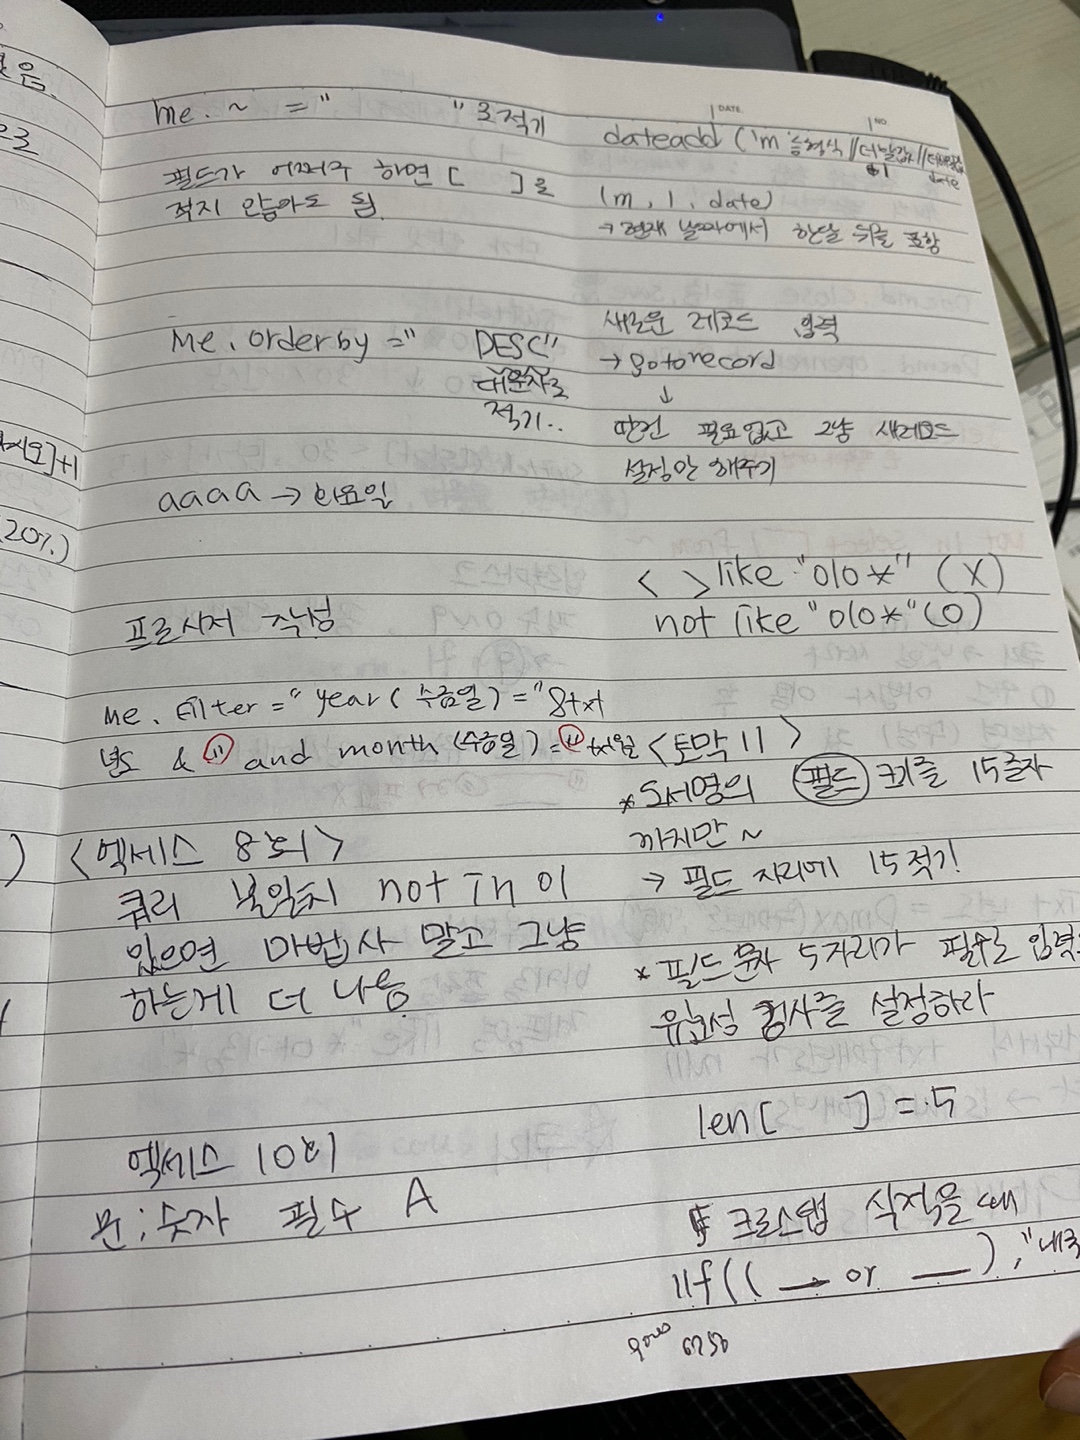 me. ~ = " " 로 적기
필드가 어쩌구 하면 [ ]을
적지 않아도 됨
Me. orderby = " DESC"
대문자로
적기..
aaaa → 화요일
프로시저 작성
me. Filter = "year(수금일)="&txt
년도 & " and month (수금일)=" txt월
<엑세스 8회>
쿼리 불일치 not in 이
있으면 마법사 말고 그냥
하는게 더 나음
엑세스 10회
문;숫자 필수 A
DATE
NO
dateadd ('m' 형식//더할값//
date
(m, 1, date)
→ 현재 날짜에서 한달 뒤를 포함
새로운 레코드 입력
→ gotorecord
↓
딴건 필요없고 그냥 새레코드
설정만 해주기
< > like "010*" (X)
not like "010*" (O)
<토막 11>
* 도서명의 필드 크기를 15글자
까지만 ~
→ 필드 자리에 15 적기!
* 필드 문자 5자리가 필수로 입력
유효성 검사를 설정하라
len[ ] = 5
크로스탭 식적을 때
iif(( — or — ), "
음.
시오]+1
20%)
)